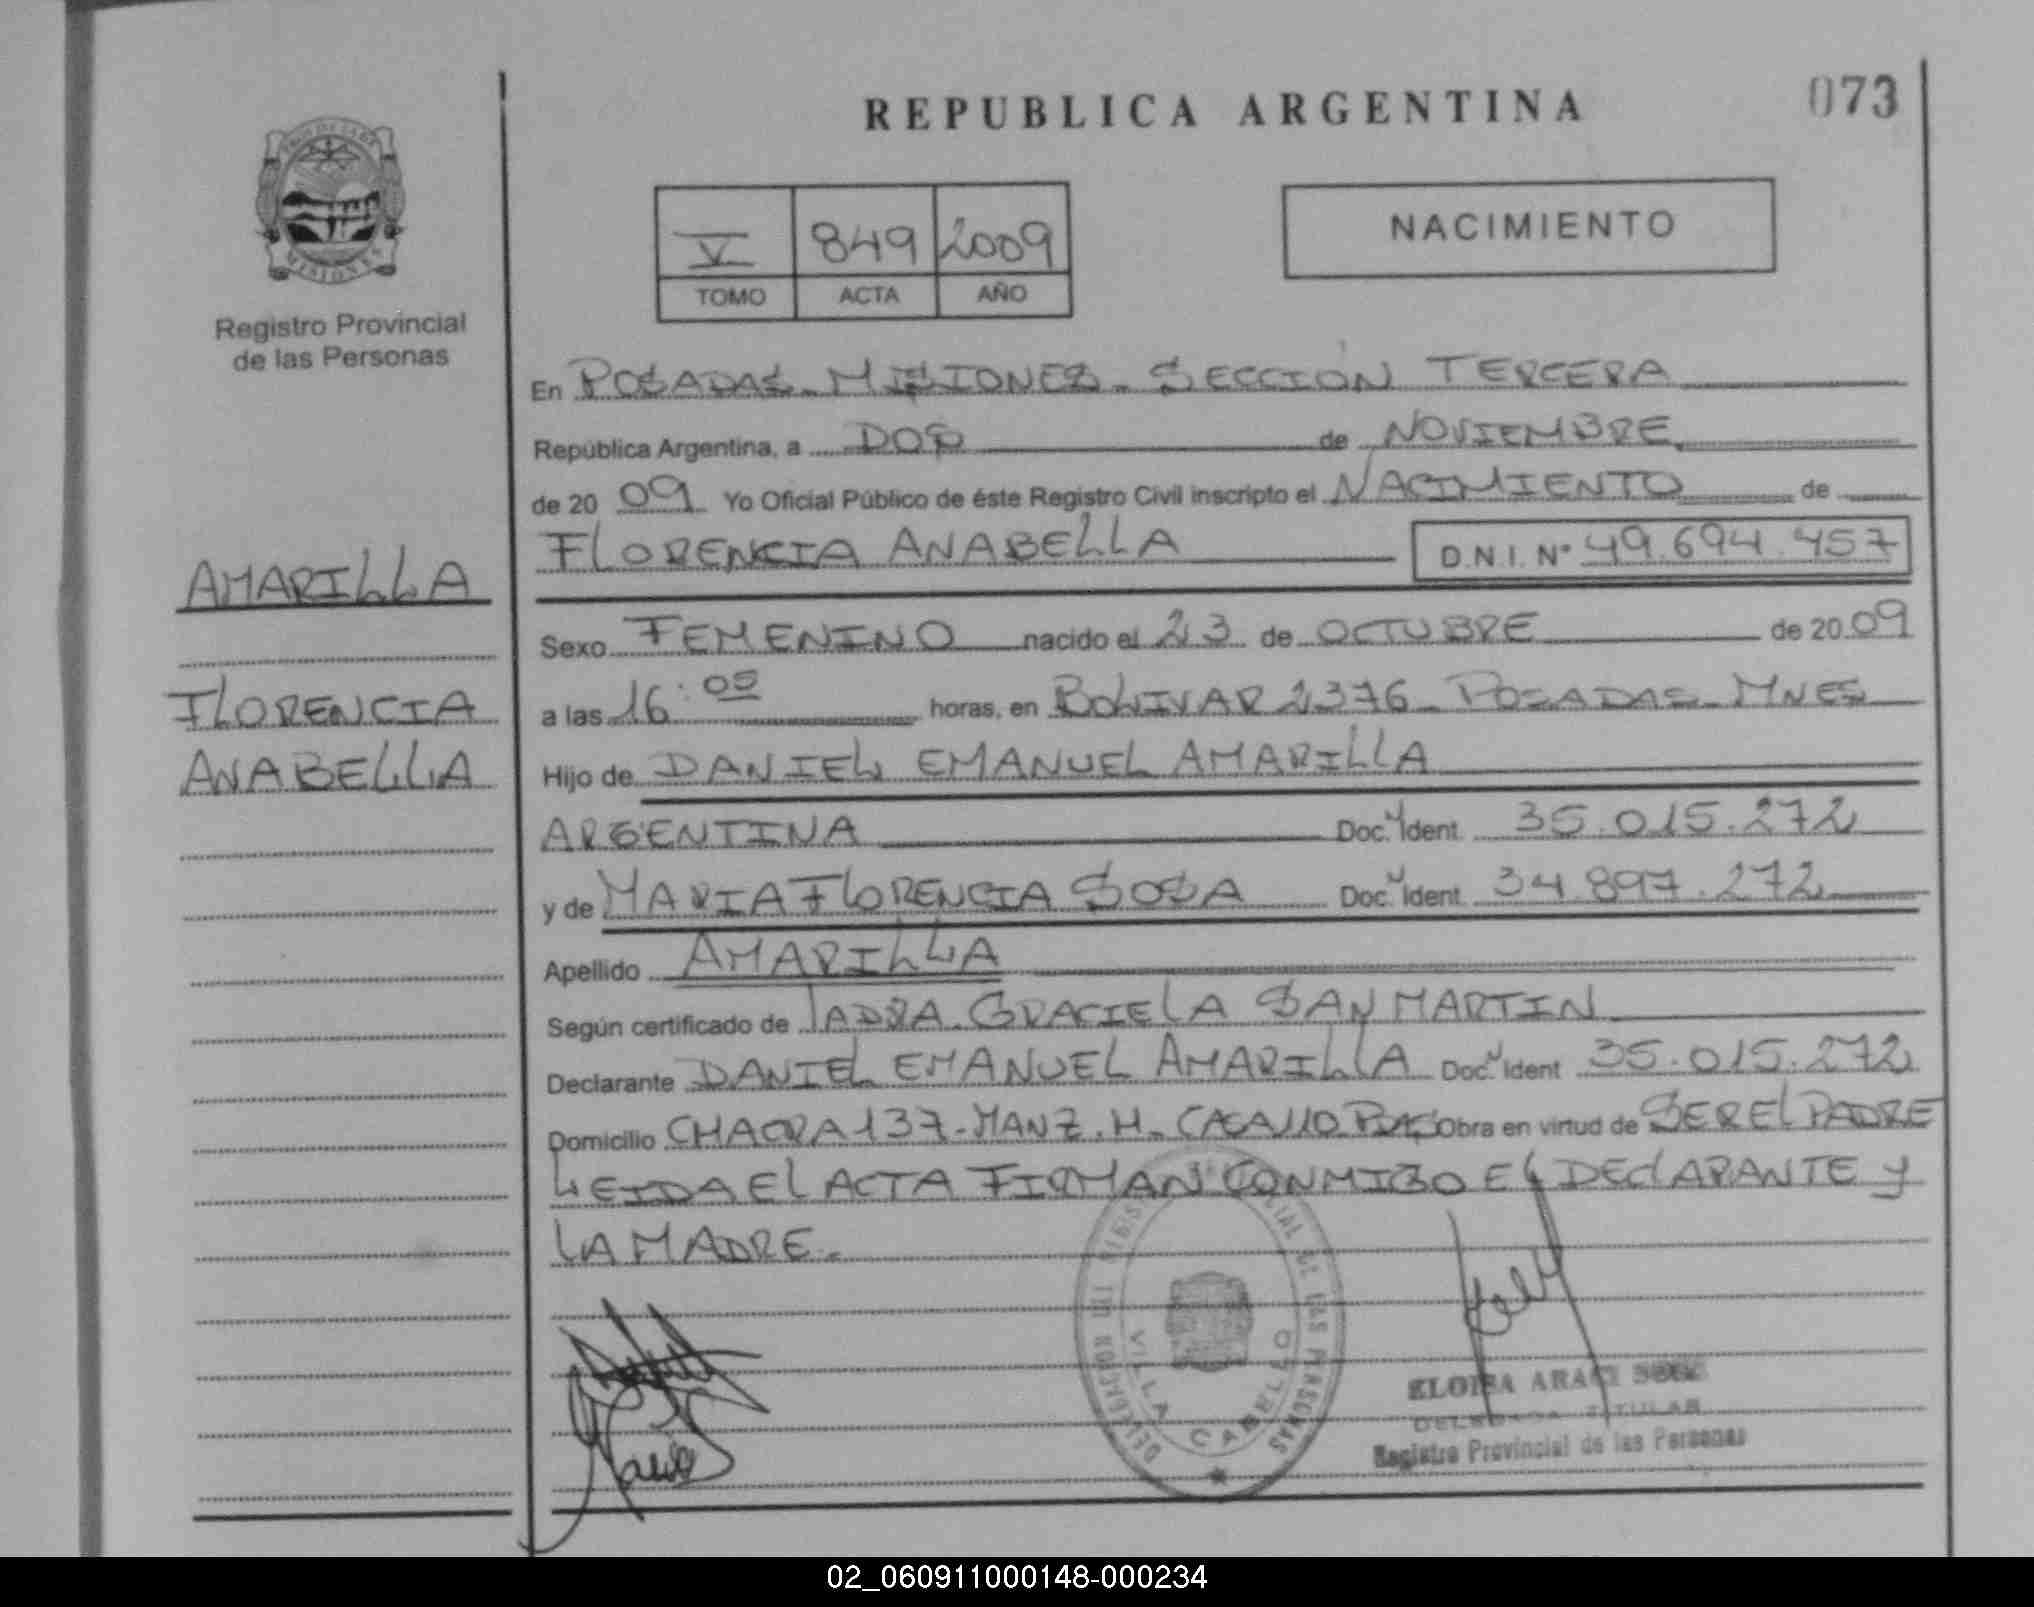 REPUBLICA ARGENTINA
073
NACIMIENTO
V 849 2009
TOMO ACTA AÑO
MISIONES
Registro Provincial
de las Personas
En POSADAS - MISIONES - SECCIÓN TERCERA
República Argentina, a DOS de NOVIEMBRE
de 20 09 Yo Oficial Público de éste Registro Civil inscripto el NACIMIENTO de
FLORENCIA ANABELLA D.N.I. Nº 49.694.457
AMARILLA
FLORENCIA
ANABELLA
Sexo FEMENINO nacido el 23 de OCTUBRE de 20 09
a las 16:05 horas, en BOLIVAR 2376 - POSADAS - MNES
Hijo de DANIEL EMANUEL AMARILLA
ARGENTINA Doc. Ident 35.015.272
y de MARIA FLORENCIA SOSA Doc. Ident 34.897.272
Apellido AMARILLA
Según certificado de GRACIELA SAN MARTIN
Declarante DANIEL EMANUEL AMARILLA Doc. Ident 35.015.272
Domicilio CHACRA 137 - MANZ. H - CASA 110 Obra en virtud de SER EL PADRE
LEIDA EL ACTA FIRMAN CONMIGO EL DECLARANTE Y
LA MADRE.
VILLA CABELLO
ELOISA ARACI
DELEGADA TITULAR
Registro Provincial de las Personas
02_060911000148-000234